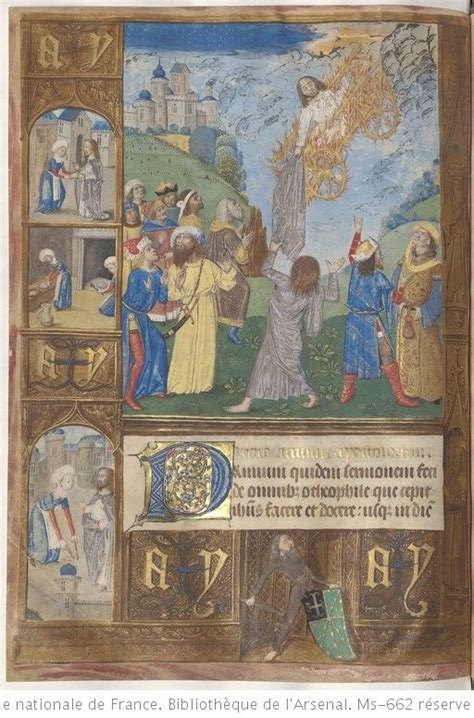 A Y
A Y
Primum quidem sermonem feci
de omnibꝰ o theophile que cepit
ihūs facere et docere : usqꝫ in diē
A Y
A Y
e nationale de France. Bibliothèque de l'Arsenal. Ms-662 réserve